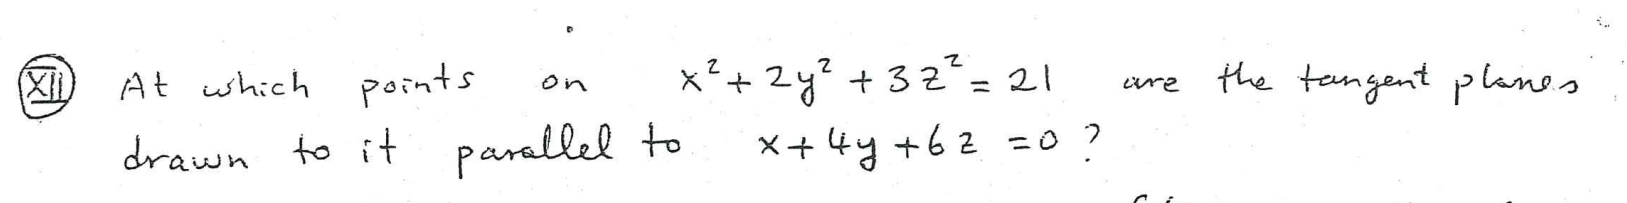 XII At which points on x² + 2y² + 3z² = 21 are the tangent planes
drawn to it parallel to x + 4y + 6z = 0 ?